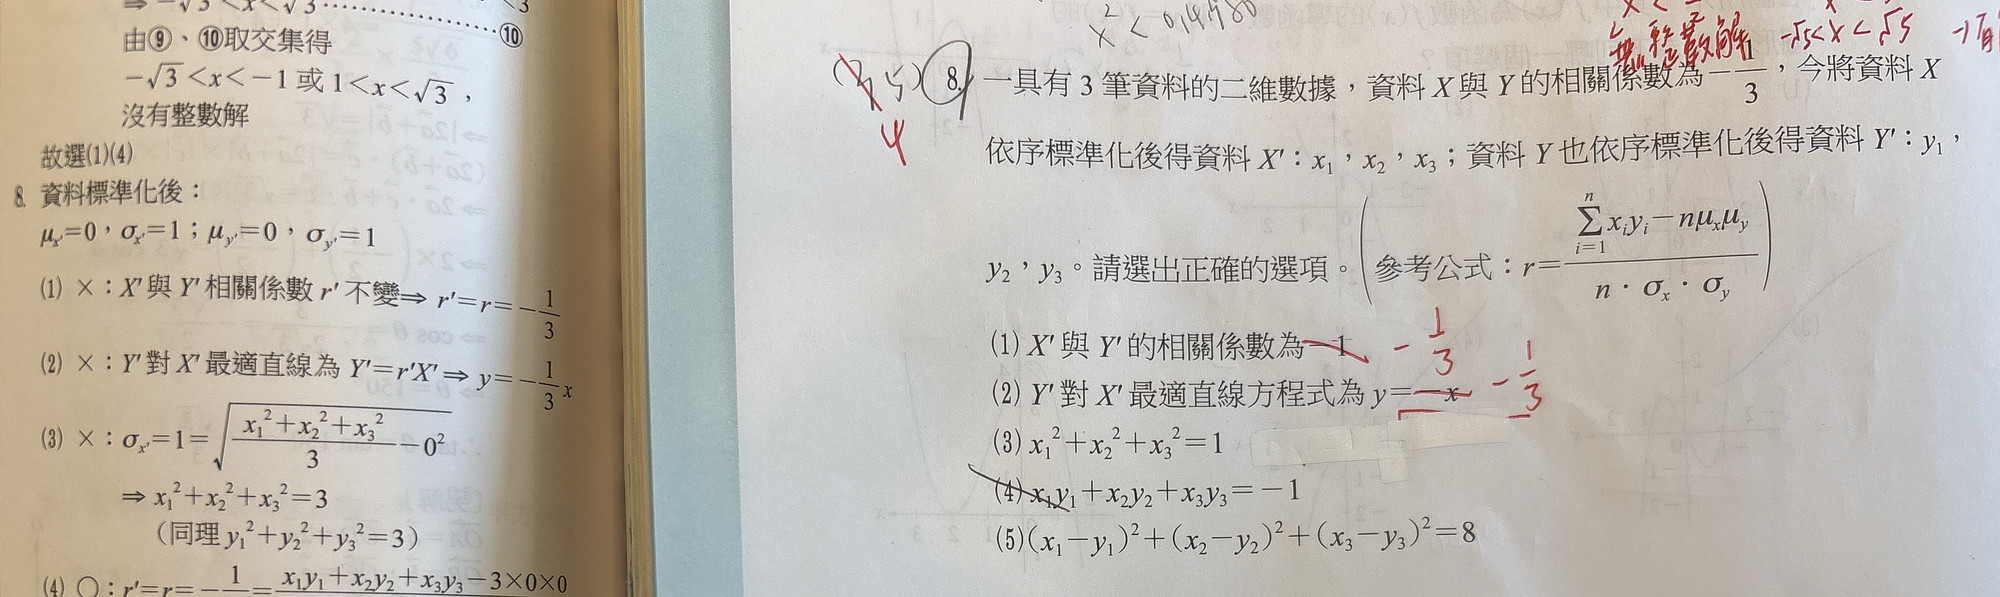 ⇒ −√3 < x < √3 ……………… ⑩
由⑨、⑩取交集得
−√3 < x < −1 或 1 < x < √3，
沒有整數解
故選(1)(4)
8. 資料標準化後：
μx'=0，σx'=1；μy'=0，σy'=1
(1) ×：X′與Y′相關係數 r′ 不變⇒ r′=r=−1/3
(2) ×：Y′對 X′最適直線為 Y′=r′X′⇒ y=−1/3 x
(3) ×：σx'=1=√((x₁²+x₂²+x₃²)/3 − 0²)
⇒ x₁²+x₂²+x₃²=3
（同理 y₁²+y₂²+y₃²=3）
(4) ○：r′=r=−1/3=x₁y₁+x₂y₂+x₃y₃−3×0×0
x² <
無整數解
−√5<x<√5
5) 8. 一具有 3 筆資料的二維數據，資料 X 與 Y 的相關係數為 −1/3，今將資料 X
4
依序標準化後得資料 X′：x₁，x₂，x₃；資料 Y 也依序標準化後得資料 Y′：y₁，
y₂，y₃。請選出正確的選項。(參考公式：r=(Σ_{i=1}^{n} xᵢyᵢ−nμxμy)/(n·σx·σy))
(1) X′與 Y′的相關係數為−1 −1/3
(2) Y′對 X′最適直線方程式為 y=−x −1/3
(3) x₁²+x₂²+x₃²=1
(4) x₁y₁+x₂y₂+x₃y₃=−1
(5) (x₁−y₁)²+(x₂−y₂)²+(x₃−y₃)²=8